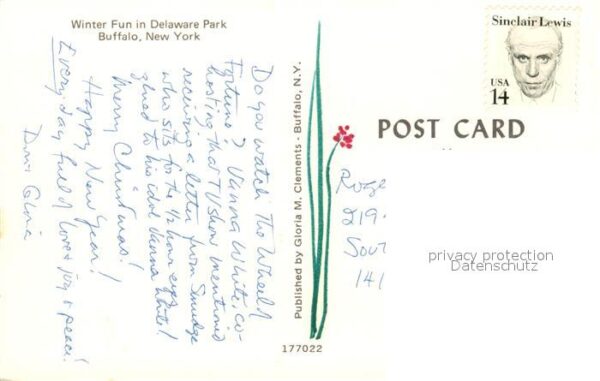 Winter Fun in Delaware Park
Buffalo, New York
Do you watch The Wheel of
Fortune? Vanna White, co-
hosting that TV show mentioned
receiving a letter from Smudge
who sits for the 1/2 hour eyes
glued to his idol Vanna White!
Merry Christmas!
Happy New Year!
Everyday full of love & joy & peace!
Gloria
Published by Gloria M. Clements - Buffalo, N.Y.
177022
Sinclair Lewis
USA
14
POST CARD
219.
Sout
141
privacy protection
Datenschutz